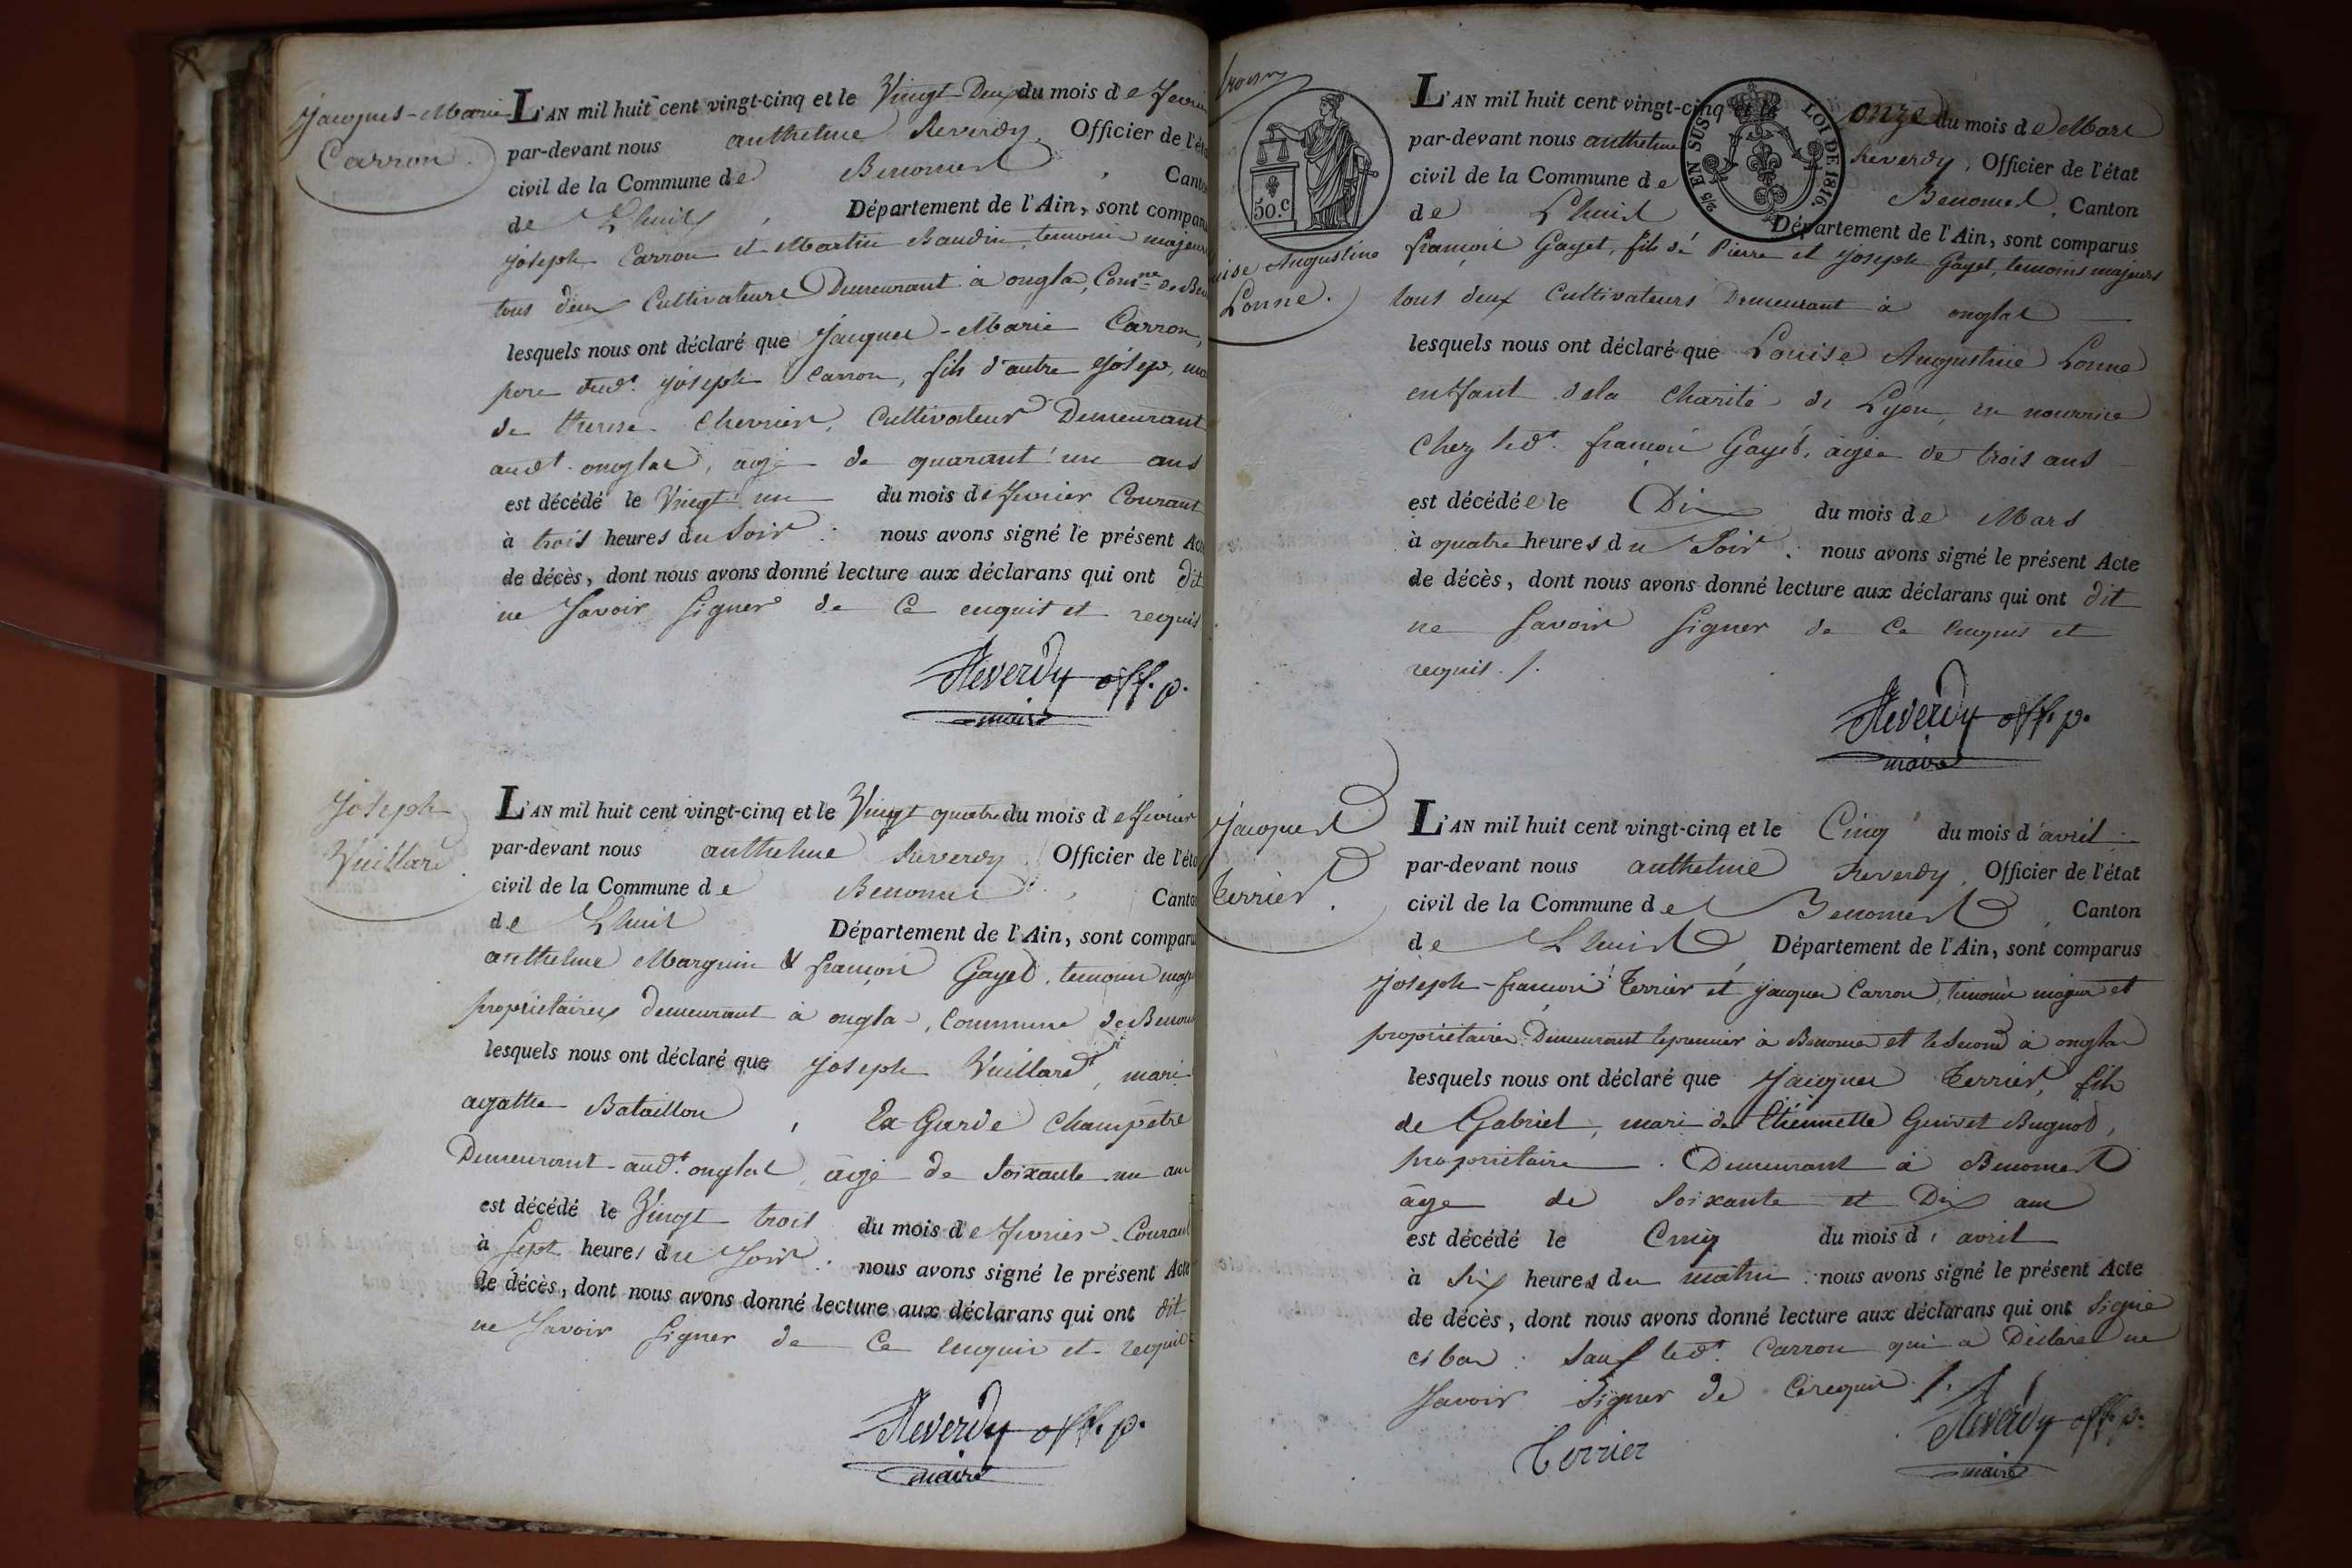 Jacques-Marie
Carron.
L'AN mil huit cent vingt-cinq et le Vingt-Deux du mois de fevrier
par-devant nous anthelme Reverdy, Officier de l'éta
civil de la Commune de Benonces, Canton
de Lhuis, Département de l'Ain, sont comparu
joseph Carron et Martin Baudin, temoins majeurs
tous deux Cultivateurs Demeurant à onglas, Comne de Ben
lesquels nous ont déclaré que Jacques-Marie Carron,
pere dudt joseph Carron, fils d'autre josep, ma
de therese Chevrier, Cultivateur Demeurant
audt onglas, agé de quarant'un ans
est décédé le Vingt un du mois de fevrier Courant
à trois heures du Soir: nous avons signé le présent Act
de décès, dont nous avons donné lecture aux déclarans qui ont dit
ne Savoir Signer de Ce enquis et requis
Reverdy off. p.
maire
Joseph
Vuillard.
L'AN mil huit cent vingt-cinq et le Vingt quatre du mois de fevrier
par-devant nous anthelme Reverdy, Officier de l'éta
civil de la Commune de Benonces, Canton
de Lhuis Département de l'Ain, sont comparu
anthelme Marguin & françois Gayet, temoins maj
propriétaires demeurant à onglas, Commune de Benon
lesquels nous ont déclaré que joseph Vuillard, mari
agathe Bataillon, Ex-Garde Champêtre
Demeurant audt onglas, âgé de Soixante un ans
est décédé le Vingt trois du mois de fevrier Courant
à Sept heures du Soir: nous avons signé le présent Acte
de décès, dont nous avons donné lecture aux déclarans qui ont dit
ne Savoir Signer de Ce enquis et requis
Reverdy off. p.
maire
50.c
uise Augustine
Lonne.
2/5 EN SUS
LOI DE 1816.
L'AN mil huit cent vingt-cinq et le onze du mois de Mars
par-devant nous anthelme Reverdy, Officier de l'état
civil de la Commune de Benonces, Canton
de Lhuis Département de l'Ain, sont comparus
françois Gayet, fils de Pierre et joseph Gayet, temoins majeurs
tous deux Cultivateurs Demeurant à onglas
lesquels nous ont déclaré que Louise Augustine Lonne
enfant de la Charité de Lyon, en nourrice
Chez ledt françois Gayet, âgée de trois ans
est décédée le Dix du mois de Mars
à quatre heures du Soir: nous avons signé le présent Acte
de décès, dont nous avons donné lecture aux déclarans qui ont dit
ne Savoir Signer de Ce enquis et
requis./.
Reverdy off. p.
maire
Jacques
Terrier.
L'AN mil huit cent vingt-cinq et le Cinq du mois d'avril
par-devant nous anthelme Reverdy, Officier de l'état
civil de la Commune de Benonces, Canton
de Lhuis Département de l'Ain, sont comparus
joseph-françois Terrier et jacques Carron, temoins majeurs et
propriétaires Demeurant le premier à Benonces et le Second à onglas
lesquels nous ont déclaré que Jacques Terrier, fils
de Gabriel, mari de Etiennette Guivet Bugnod,
propriétaire. Demeurant à Benonces
âgé de Soixante et Dix ans
est décédé le Cinq du mois d'avril
à Six heures du matin: nous avons signé le présent Acte
de décès, dont nous avons donné lecture aux déclarans qui ont Signé
ci bas: Sauf ledt Carron qui a Déclaré ne
Savoir Signer de Ce requis./.
Terrier
Reverdy off. p.
maire